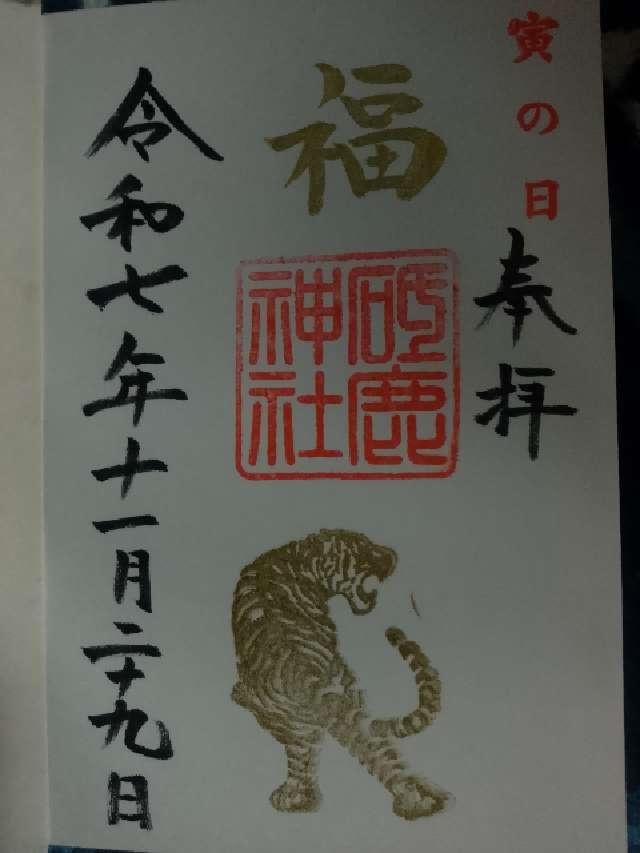 寅の日
奉拝
福
砥鹿
神社
令和七年十一月二十九日